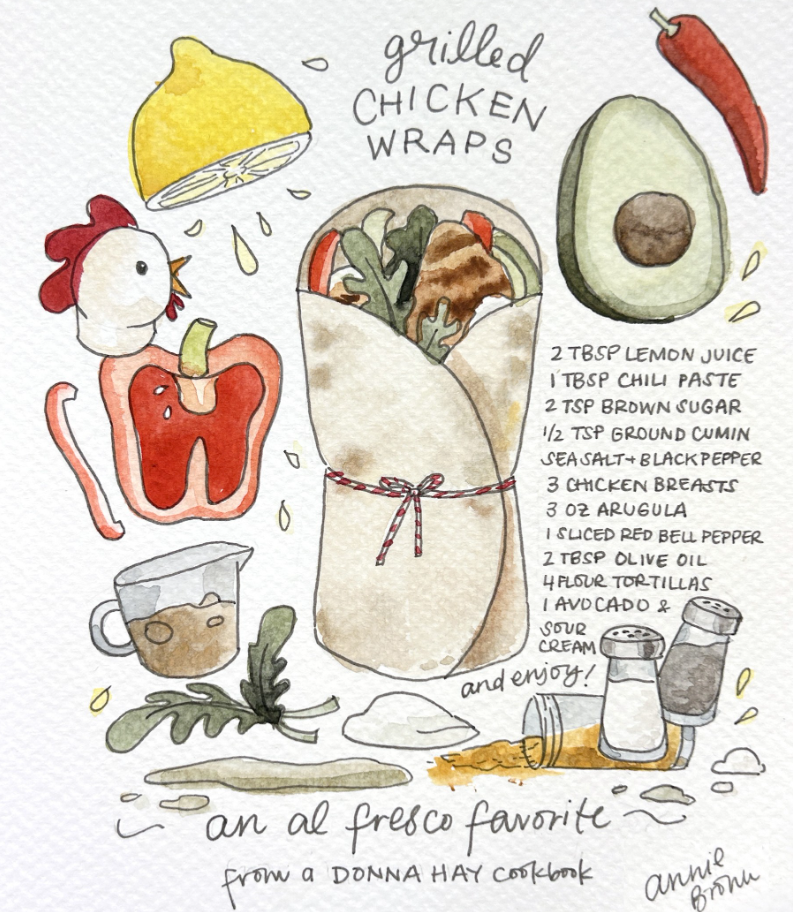 grilled
CHICKEN
WRAPS
2 TBSP LEMON JUICE
1 TBSP CHILI PASTE
2 TSP BROWN SUGAR
1/2 TSP GROUND CUMIN
SEA SALT + BLACK PEPPER
3 CHICKEN BREASTS
3 OZ ARUGULA
1 SLICED RED BELL PEPPER
2 TBSP OLIVE OIL
4 FLOUR TORTILLAS
1 AVOCADO &
SOUR
CREAM
and enjoy!
an al fresco favorite
from a DONNA HAY cookbook
annie
Brown